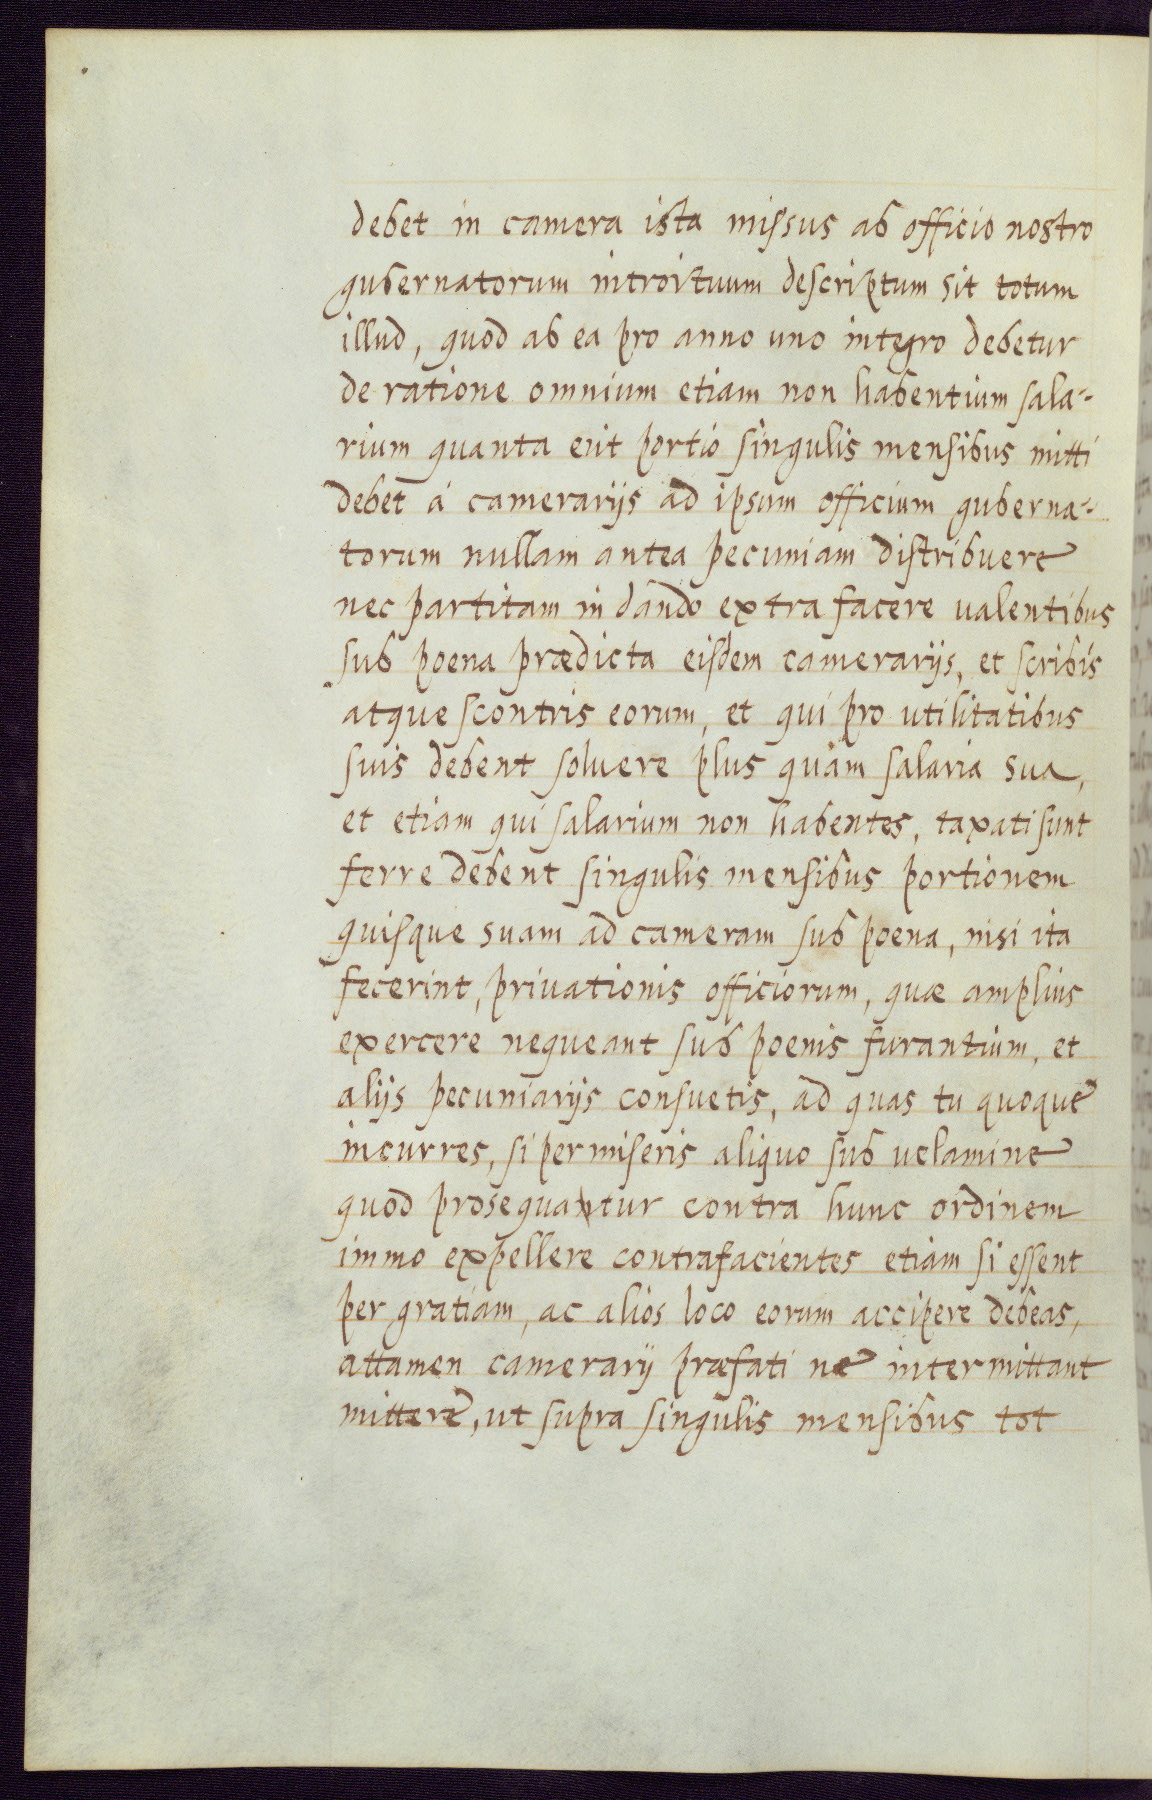 debet in camera ista missus ab officio nostro
gubernatorum introituum descriptum sit totum
illud, quod ab ea pro anno uno integro debetur
de ratione omnium etiam non habentium sala-
rium quanta erit portio singulis mensibus mitti
debet á camerarijs ad ipsum officium guberna-
torum nullam antea pecuniam distribuere
nec partitam in dando extra facere ualentibus
sub poena prædicta eisdem camerarijs, et scribis
atque scontris eorum, et qui pro utilitatibus
suis debent soluere plus quàm salaria sua,
et etiam qui salarium non habentes, taxati sunt
ferre debent singulis mensibus portionem
quisque suam ad cameram sub poena, nisi ita
fecerint, priuationis officiorum, quæ amplius
exercere nequeant sub poenis furantium, et
alijs pecuniarijs consuetis, ad quas tu quoque
incurres, si permiseris aliquo sub uelamine
quod prosequantur contra hunc ordinem
immo expellere contrafacientes etiam si essent
per gratiam, ac alios loco eorum accipere debeas,
attamen camerarij præfati ne intermittant
mittere, ut supra singulis mensibus tot